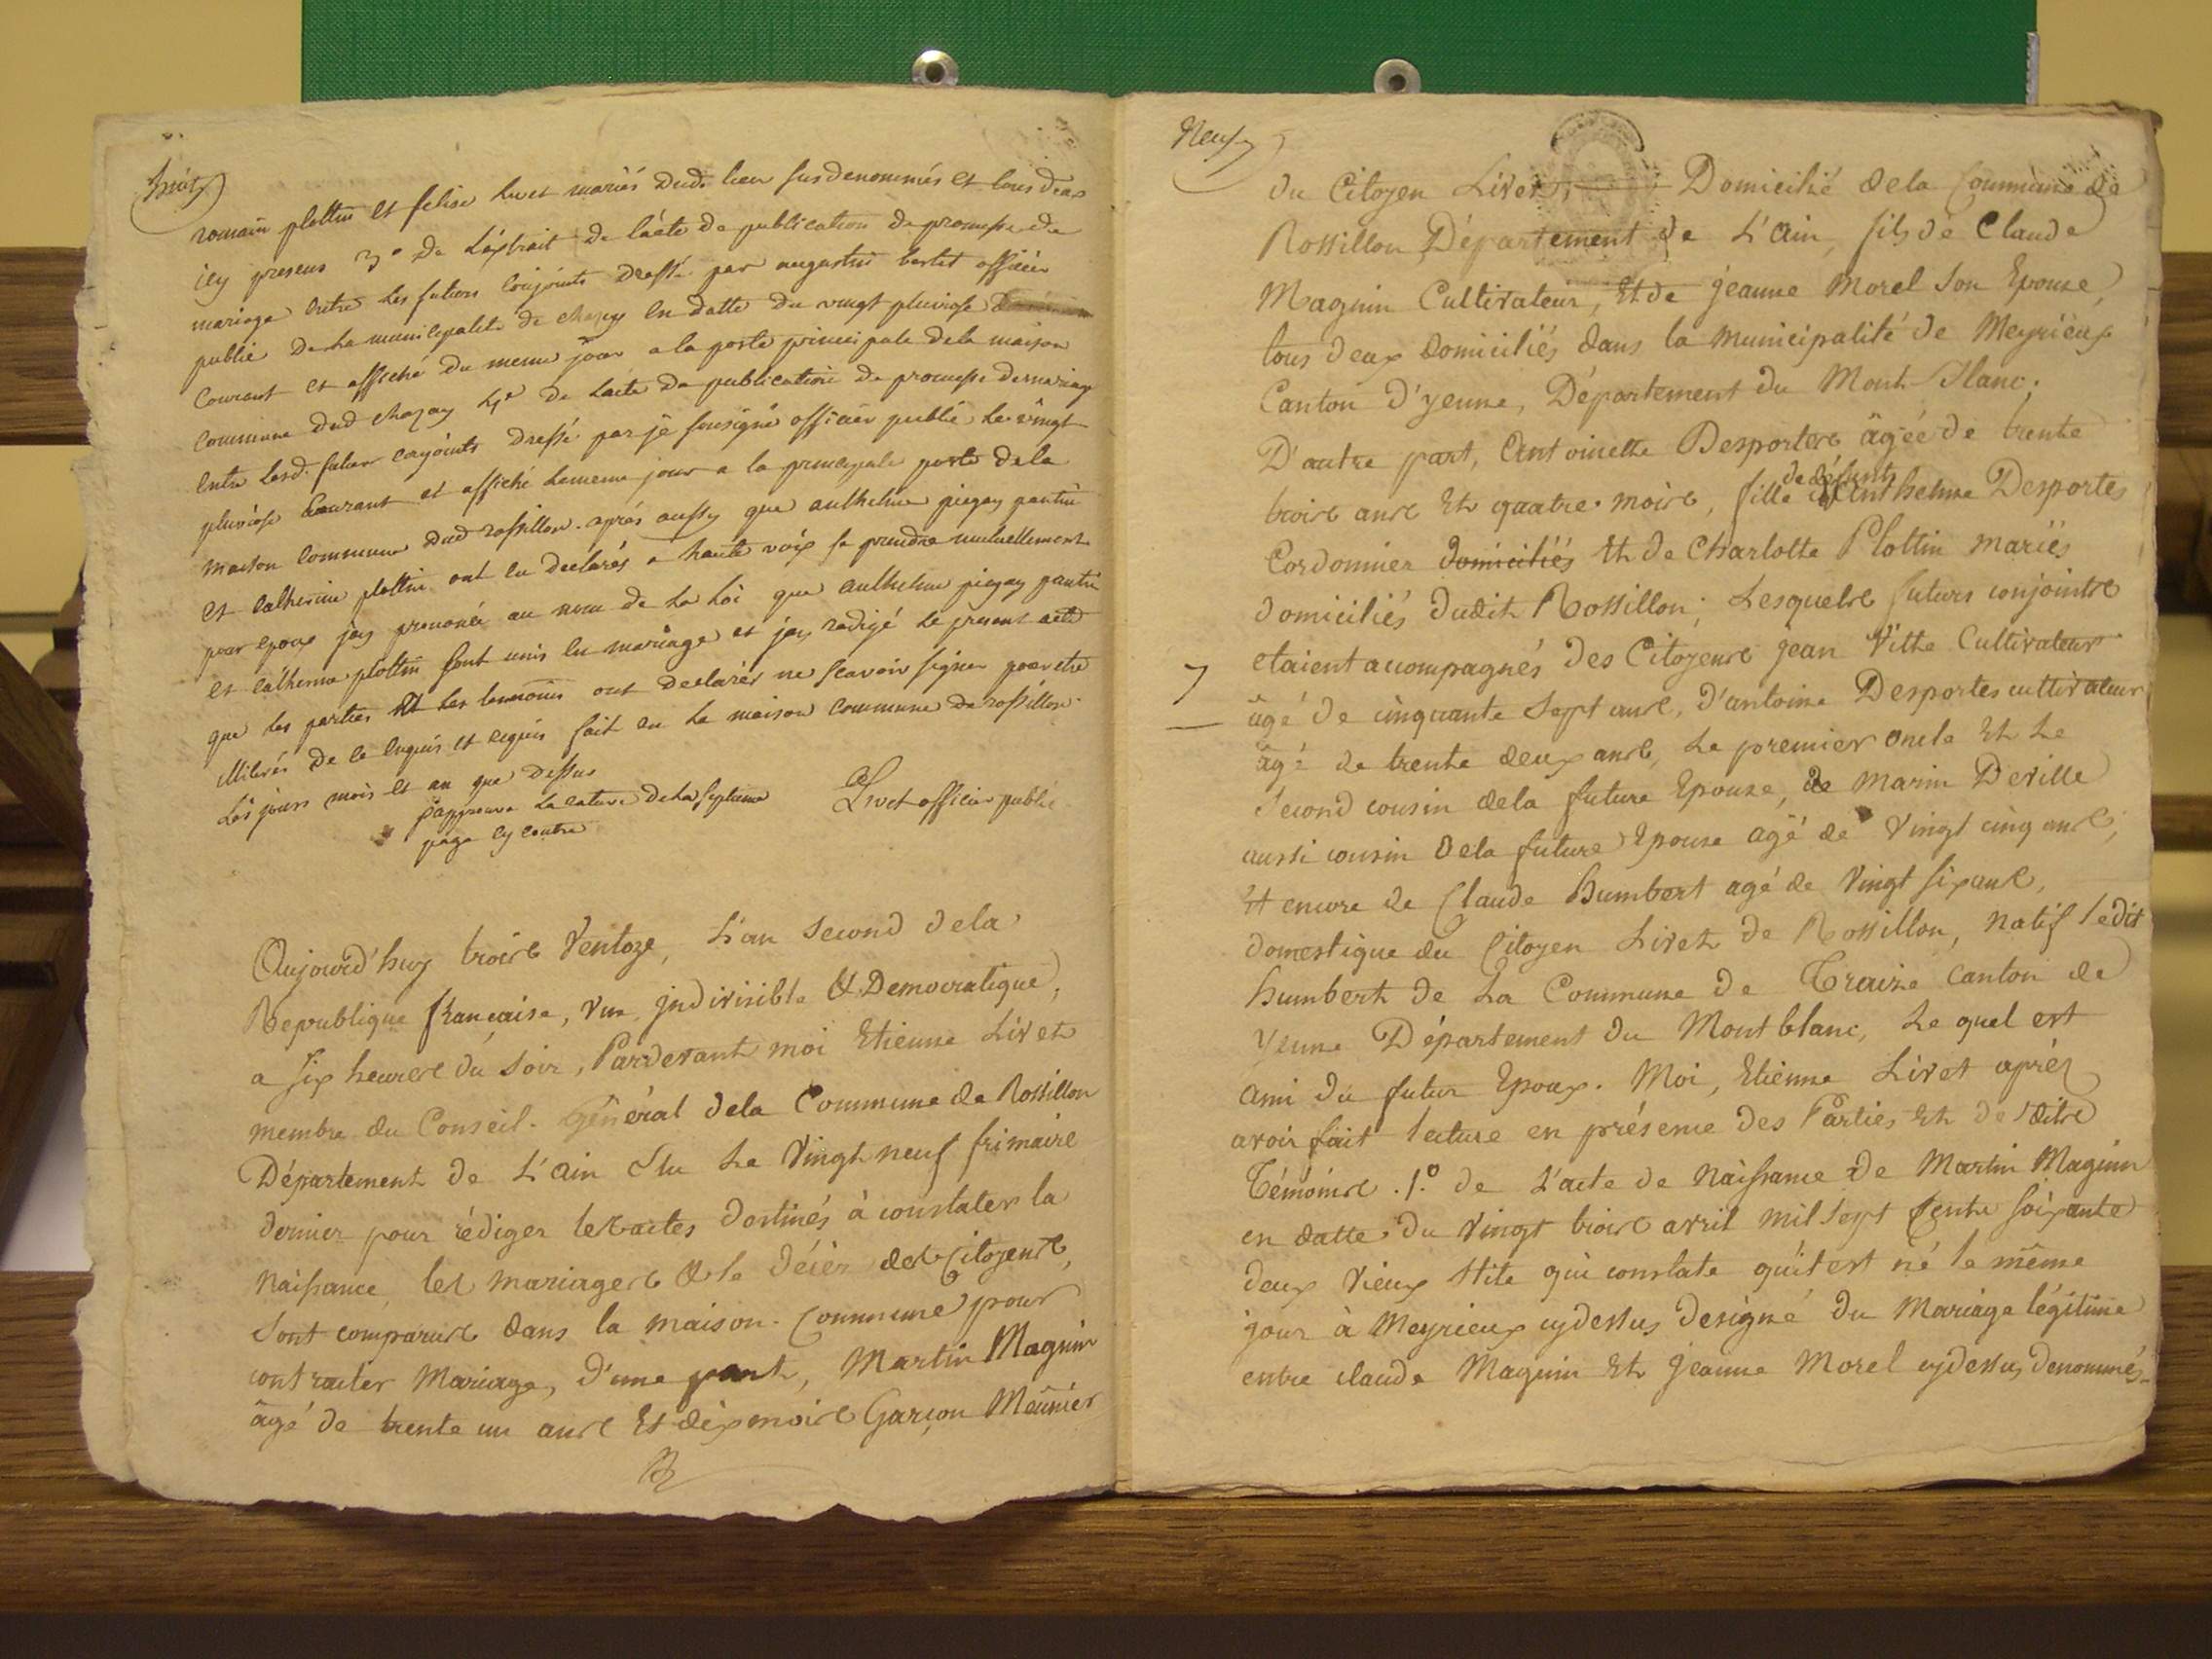 huit
romain plottin et felise livet mariés dud. lieu susdenommés et tous deux
icy presens 3º de L'éxtrait de l'acte de publication de promesse de
mariage entre les futurs conjoints dressé par augustin bertet officier
public de la municipalité de chazey en datte du vingt pluviose
courant et affiché du meme jour a la porte principale de la maison
commune dud chazey 4º de l'acte de publication de promesse de mariage
entre lesd. futur conjoints dressé par je sousigné officier public le vingt
pluviose courant et affiché le meme jour a la principale porte de la
maison commune dud rossillon. aprés aussy que anthelme piegay pantin
et catherine plottin ont eu declarés a haute voix se prendre mutuellement
pour epoux jay prononcé au nom de la Loi que anthelme piegay pantin
et catherine plottin sont unis en mariage et jay redigé le present acte
que les parties et les temoins ont declarés ne scavoir signer pour etre
illiterés de ce enquis et requis fait en la maison commune de rossillon.
Les jours mois et an que dessus
j'approuve La rature de la septieme
page cy contre
Livet officier public
Aujourd'huy trois Ventoze, L'an Second de la
Republique française, vne, jndivisible & Democratique,
a six heures du soir, Pardevant moi Etienne Livet
membre du Conseil-Général de la Commune de Rossillon
Département de L'ain Elu Le Vingt neuf frimaire
dernier pour rédiger les actes destinés à constater la
Naissance, les mariages & le décès des Citoyens,
Sont comparus dans la maison-Commune pour
contracter Mariage, d'une part, Martin Magnin
âgé de trente un ans Et dix mois Garçon Meûnier
Neuf
du Citoyen Livet, Domicilié de la Commune de
Rossillon Département de L'ain, fils de Claude
Magnin Cultivateur, Et de jeanne Morel Son Epouse,
tous deux domiciliés dans la Municipalité de Meyrieux
Canton d'yenne, Département du Mont-Blanc.
D'autre part, Antoinette Desportes âgée de trente
trois ans Et quatre mois, fille de défunt Anthelme Desportes
Cordonnier domiciliés Et de Charlotte Plottin mariés
domiciliés dudit Rossillon; Lesquels futurs conjoints
etaient accompagnés des Citoyens jean Vitte Cultivateur
7
âgé de cinquante Sept ans, d'antoine Desportes cultivateur
âgé de trente deux ans, Le premier oncle Et Le
Second cousin de la future Epouse, de Marin Deville
aussi cousin de la future Epouse agé de Vingt cinq ans,
Et encore de Claude Humbert agé de Vingt six ans,
domestique du Citoyen Livet de Rossillon, natif ledit
humbert de La Commune de Traize Canton de
yenne Département du Montblanc, Le quel est
ami du futur Epoux. Moi, Etienne Livet aprés
avoir fait lecture en présence des Parties Et desdits
Témoins. 1º de L'acte de Naissance de Martin Magnin
en datte du Vingt trois avril mil Sept Cents soixante
deux Vieux Stile qui constate qu'il est né le même
jour à Meyrieux cydessus designé du Mariage légitime
entre claude Magnin Et jeanne Morel cydessus denommés